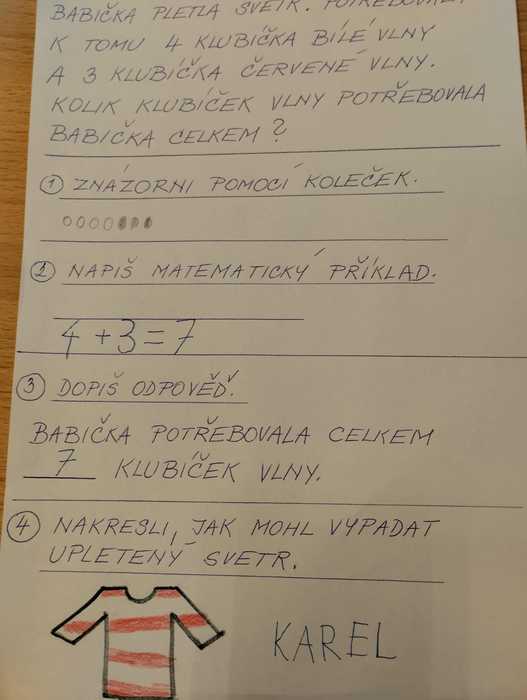 BABIČKA PLETLA SVETR. POTŘEBOVALA
K TOMU 4 KLUBÍČKA BÍLÉ VLNY
A 3 KLUBÍČKA ČERVENÉ VLNY.
KOLIK KLUBÍČEK VLNY POTŘEBOVALA
BABIČKA CELKEM?
1 ZNÁZORNI POMOCÍ KOLEČEK.
2 NAPIŠ MATEMATICKÝ PŘÍKLAD.
4+3=7
3 DOPIŠ ODPOVĚĎ.
BABIČKA POTŘEBOVALA CELKEM
7 KLUBÍČEK VLNY.
4 NAKRESLI, JAK MOHL VYPADAT
UPLETENÝ SVETR.
KAREL